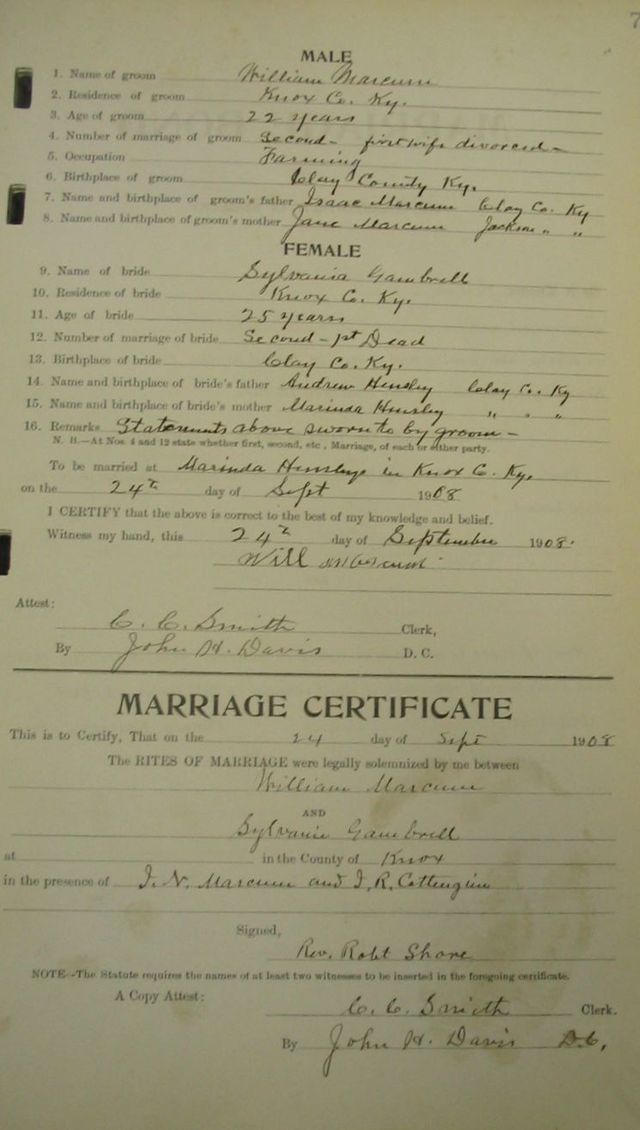 7
MALE
1. Name of groom William Marcum
2. Residence of groom Knox Co. Ky.
3. Age of groom 22 years
4. Number of marriage of groom Second - first wife divorced -
5. Occupation Farming
6. Birthplace of groom Clay County Ky.
7. Name and birthplace of groom's father Isaac Marcum Clay Co. Ky
8. Name and birthplace of groom's mother Jane Marcum Jackson " "
FEMALE
9. Name of bride Sylvania Gambrell
10. Residence of bride Knox Co. Ky.
11. Age of bride 25 years
12. Number of marriage of bride Second - 1st Dead
13. Birthplace of bride Clay Co. Ky.
14. Name and birthplace of bride's father Andrew Hensley Clay Co. Ky
15. Name and birthplace of bride's mother Marinda Hensley " " "
16. Remarks Statements above sworn to by groom -
N. B.—At Nos. 4 and 12 state whether first, second, etc., Marriage, of each or either party.
To be married at Marinda Hensleys in Knox Co. Ky.
on the 24th day of Sept 1908
I CERTIFY that the above is correct to the best of my knowledge and belief.
Witness my hand, this 24th day of September 1908.
Will Marcum
Attest:
C. C. Smith Clerk,
By John H. Davis D. C.
MARRIAGE CERTIFICATE
This is to Certify, That on the 24 day of Sept 1908
The RITES OF MARRIAGE were legally solemnized by me between
William Marcum
AND
Sylvania Gambrell
at in the County of Knox
in the presence of I. N. Marcum and I. R. Cottengim
Signed,
Rev. Robt Shore
NOTE—The Statute requires the names of at least two witnesses to be inserted in the foregoing certificate.
A Copy Attest:
C. C. Smith Clerk.
By John H. Davis D.C.